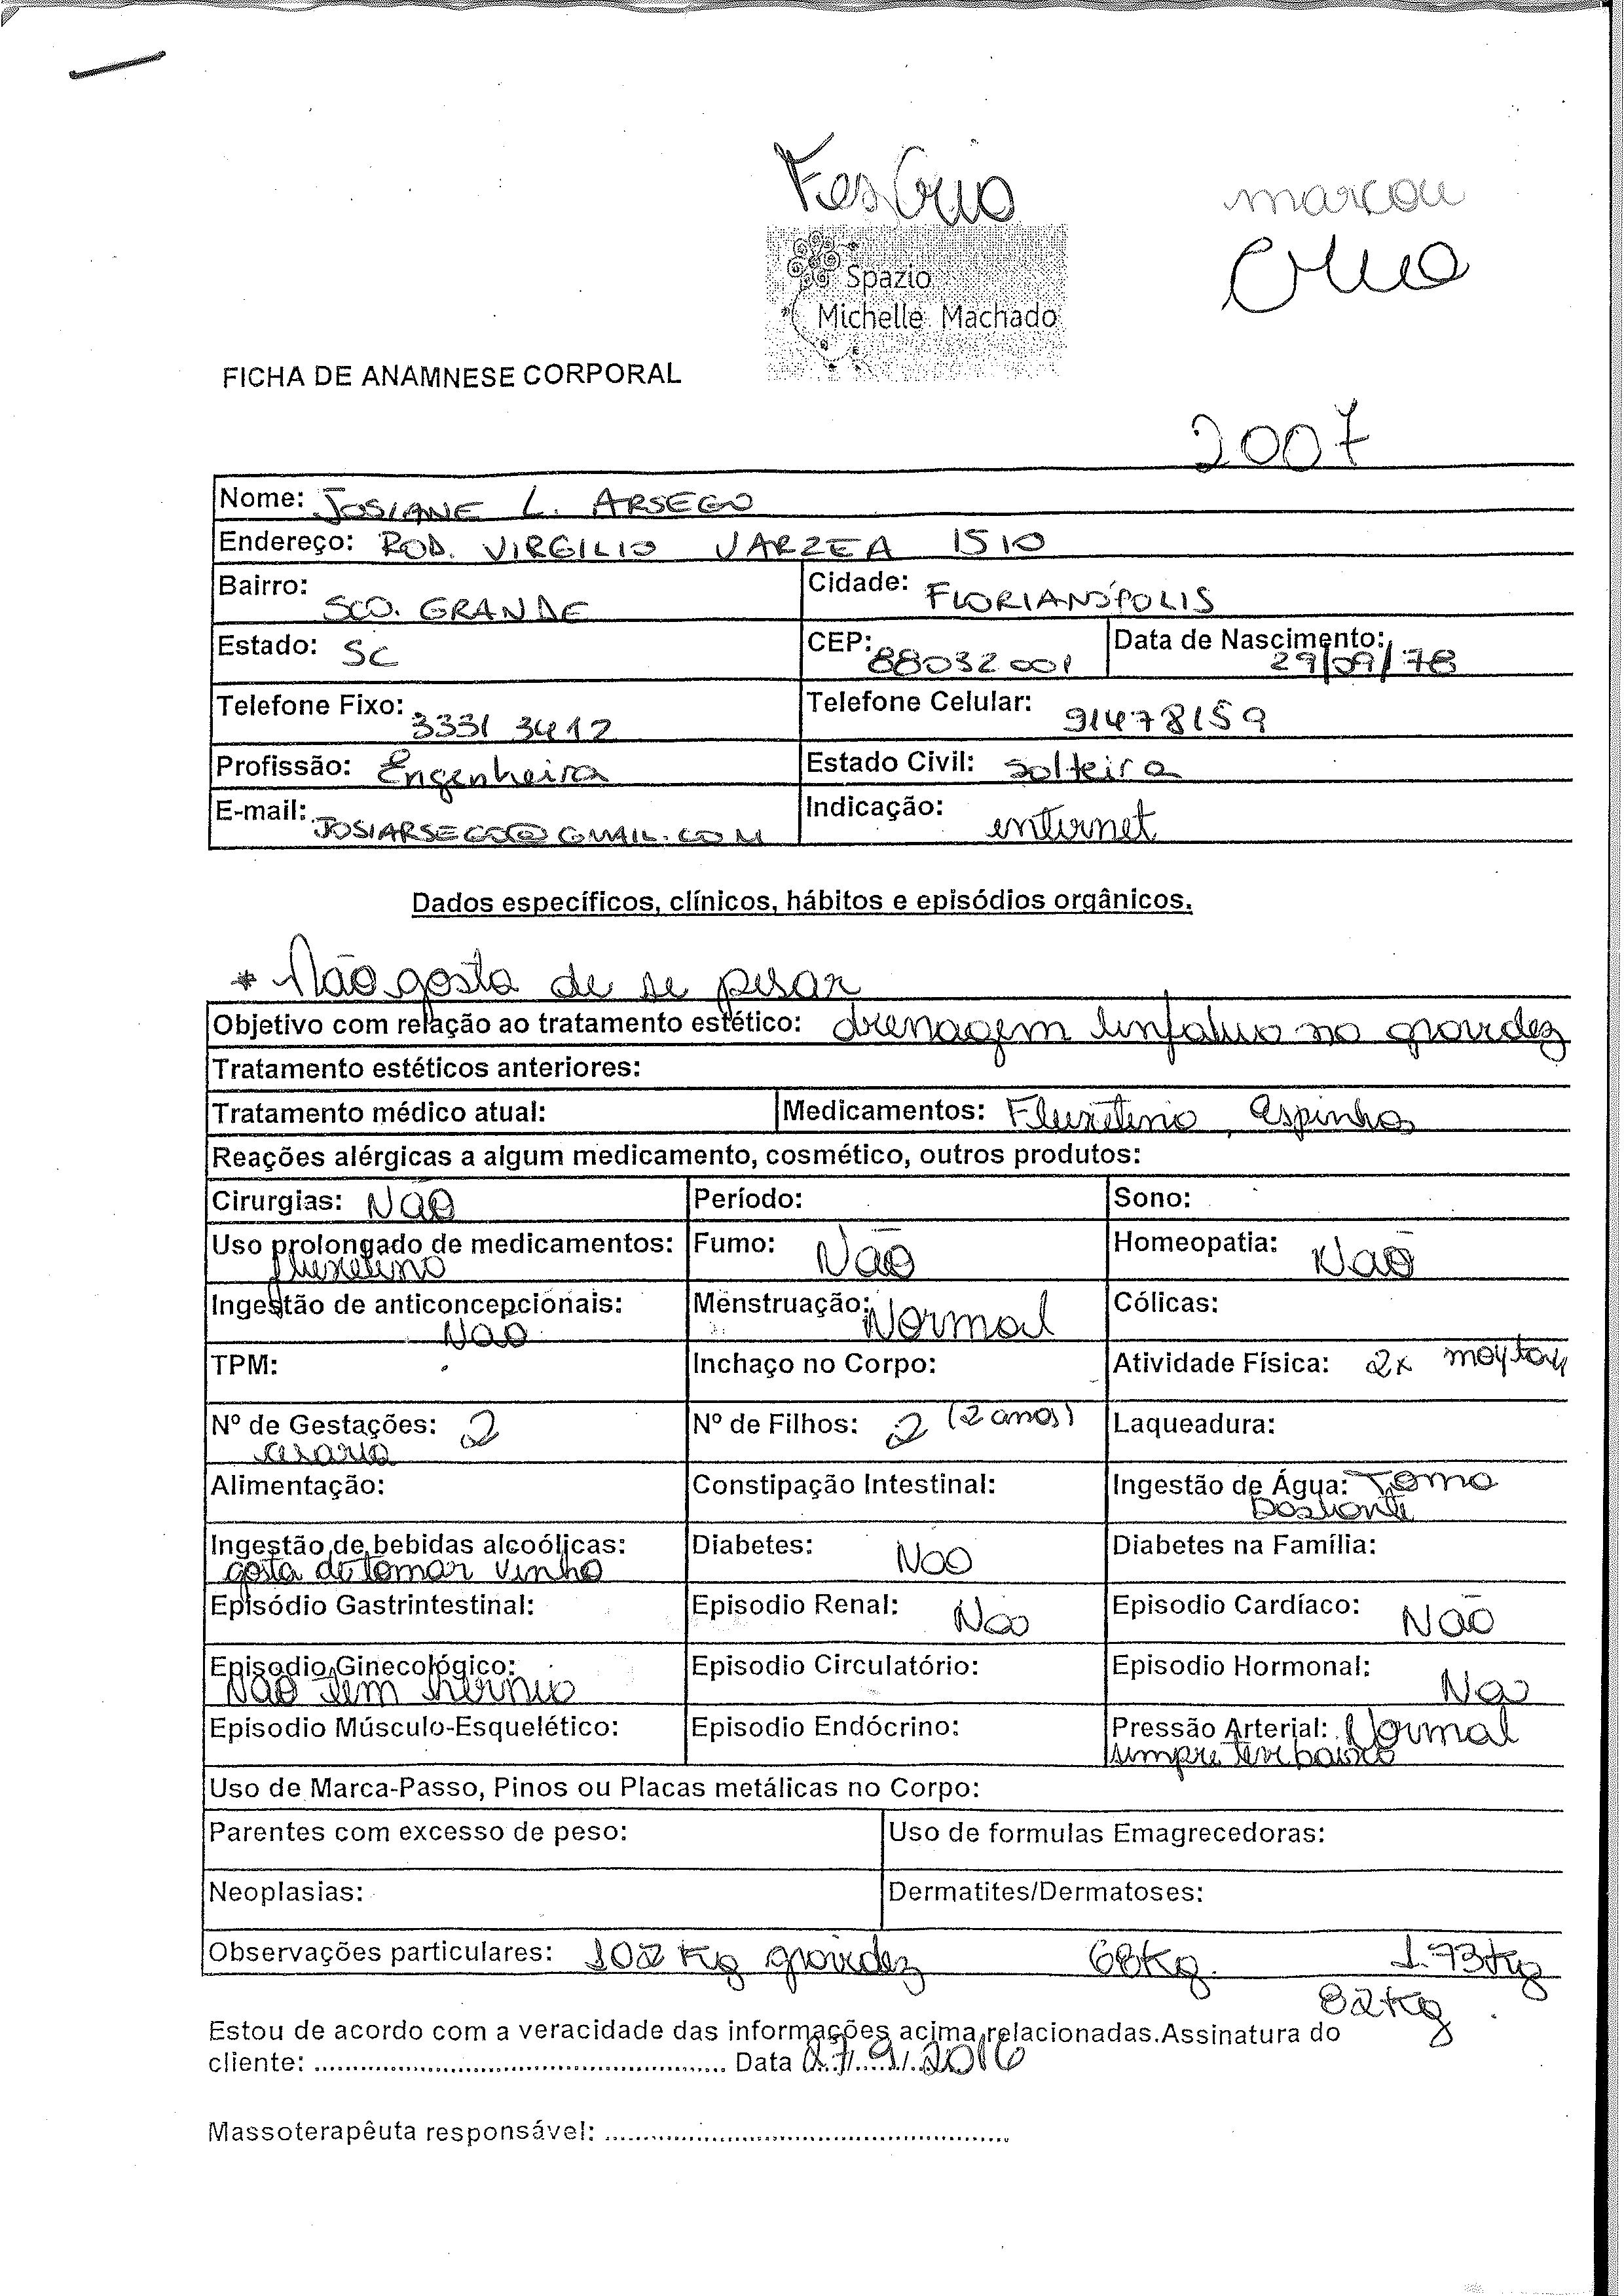 marcou
Spazio
Michelle Machado
FICHA DE ANAMNESE CORPORAL
2007
Nome: JOSIANE L. ARSEGO
Endereço: ROD. VIRGILIO VARZEA 1510
Bairro: SCO. GRANDE Cidade: FLORIANÓPOLIS
Estado: SC CEP: 88032001 Data de Nascimento: 29/09/78
Telefone Fixo: 3331 3412 Telefone Celular: 91478159
Profissão: Engenheira Estado Civil: solteira
E-mail: JOSIARSEGO@GMAIL.COM Indicação: internet
Dados específicos, clínicos, hábitos e episódios orgânicos.
* Não gosta de se pesar
Objetivo com relação ao tratamento estético: drenagem linfatica na gravidez
Tratamento estéticos anteriores:
Tratamento médico atual: Medicamentos: Fluxetina,
Reações alérgicas a algum medicamento, cosmético, outros produtos:
Cirurgias: NÃO Período: Sono:
Uso prolongado de medicamentos: Fumo: Não Homeopatia: Não
fluxetina
Ingestão de anticoncepcionais: Menstruação: Normal Cólicas:
Não
TPM: Inchaço no Corpo: Atividade Física: 2x
Nº de Gestações: 2 Nº de Filhos: 2 (2 anos) Laqueadura:
cesaria
Alimentação: Constipação Intestinal: Ingestão de Água: Toma
Bastante
Ingestão de bebidas alcoólicas: Diabetes: Não Diabetes na Família:
gosta de tomar vinho
Episódio Gastrintestinal: Episodio Renal: Não Episodio Cardíaco: NÃO
Episodio Ginecológico: Episodio Circulatório: Episodio Hormonal: Não
Não tem hernia
Episodio Músculo-Esquelético: Episodio Endócrino: Pressão Arterial: Normal
sempre teve baixa
Uso de Marca-Passo, Pinos ou Placas metálicas no Corpo:
Parentes com excesso de peso: Uso de formulas Emagrecedoras:
Neoplasias: Dermatites/Dermatoses:
Observações particulares: 102 Kg gravidez 68Kg. 1.73Kg
82Kg
Estou de acordo com a veracidade das informações acima relacionadas.Assinatura do
cliente: .................................................. Data 27/9/2016
Massoterapêuta responsável: ..................................................